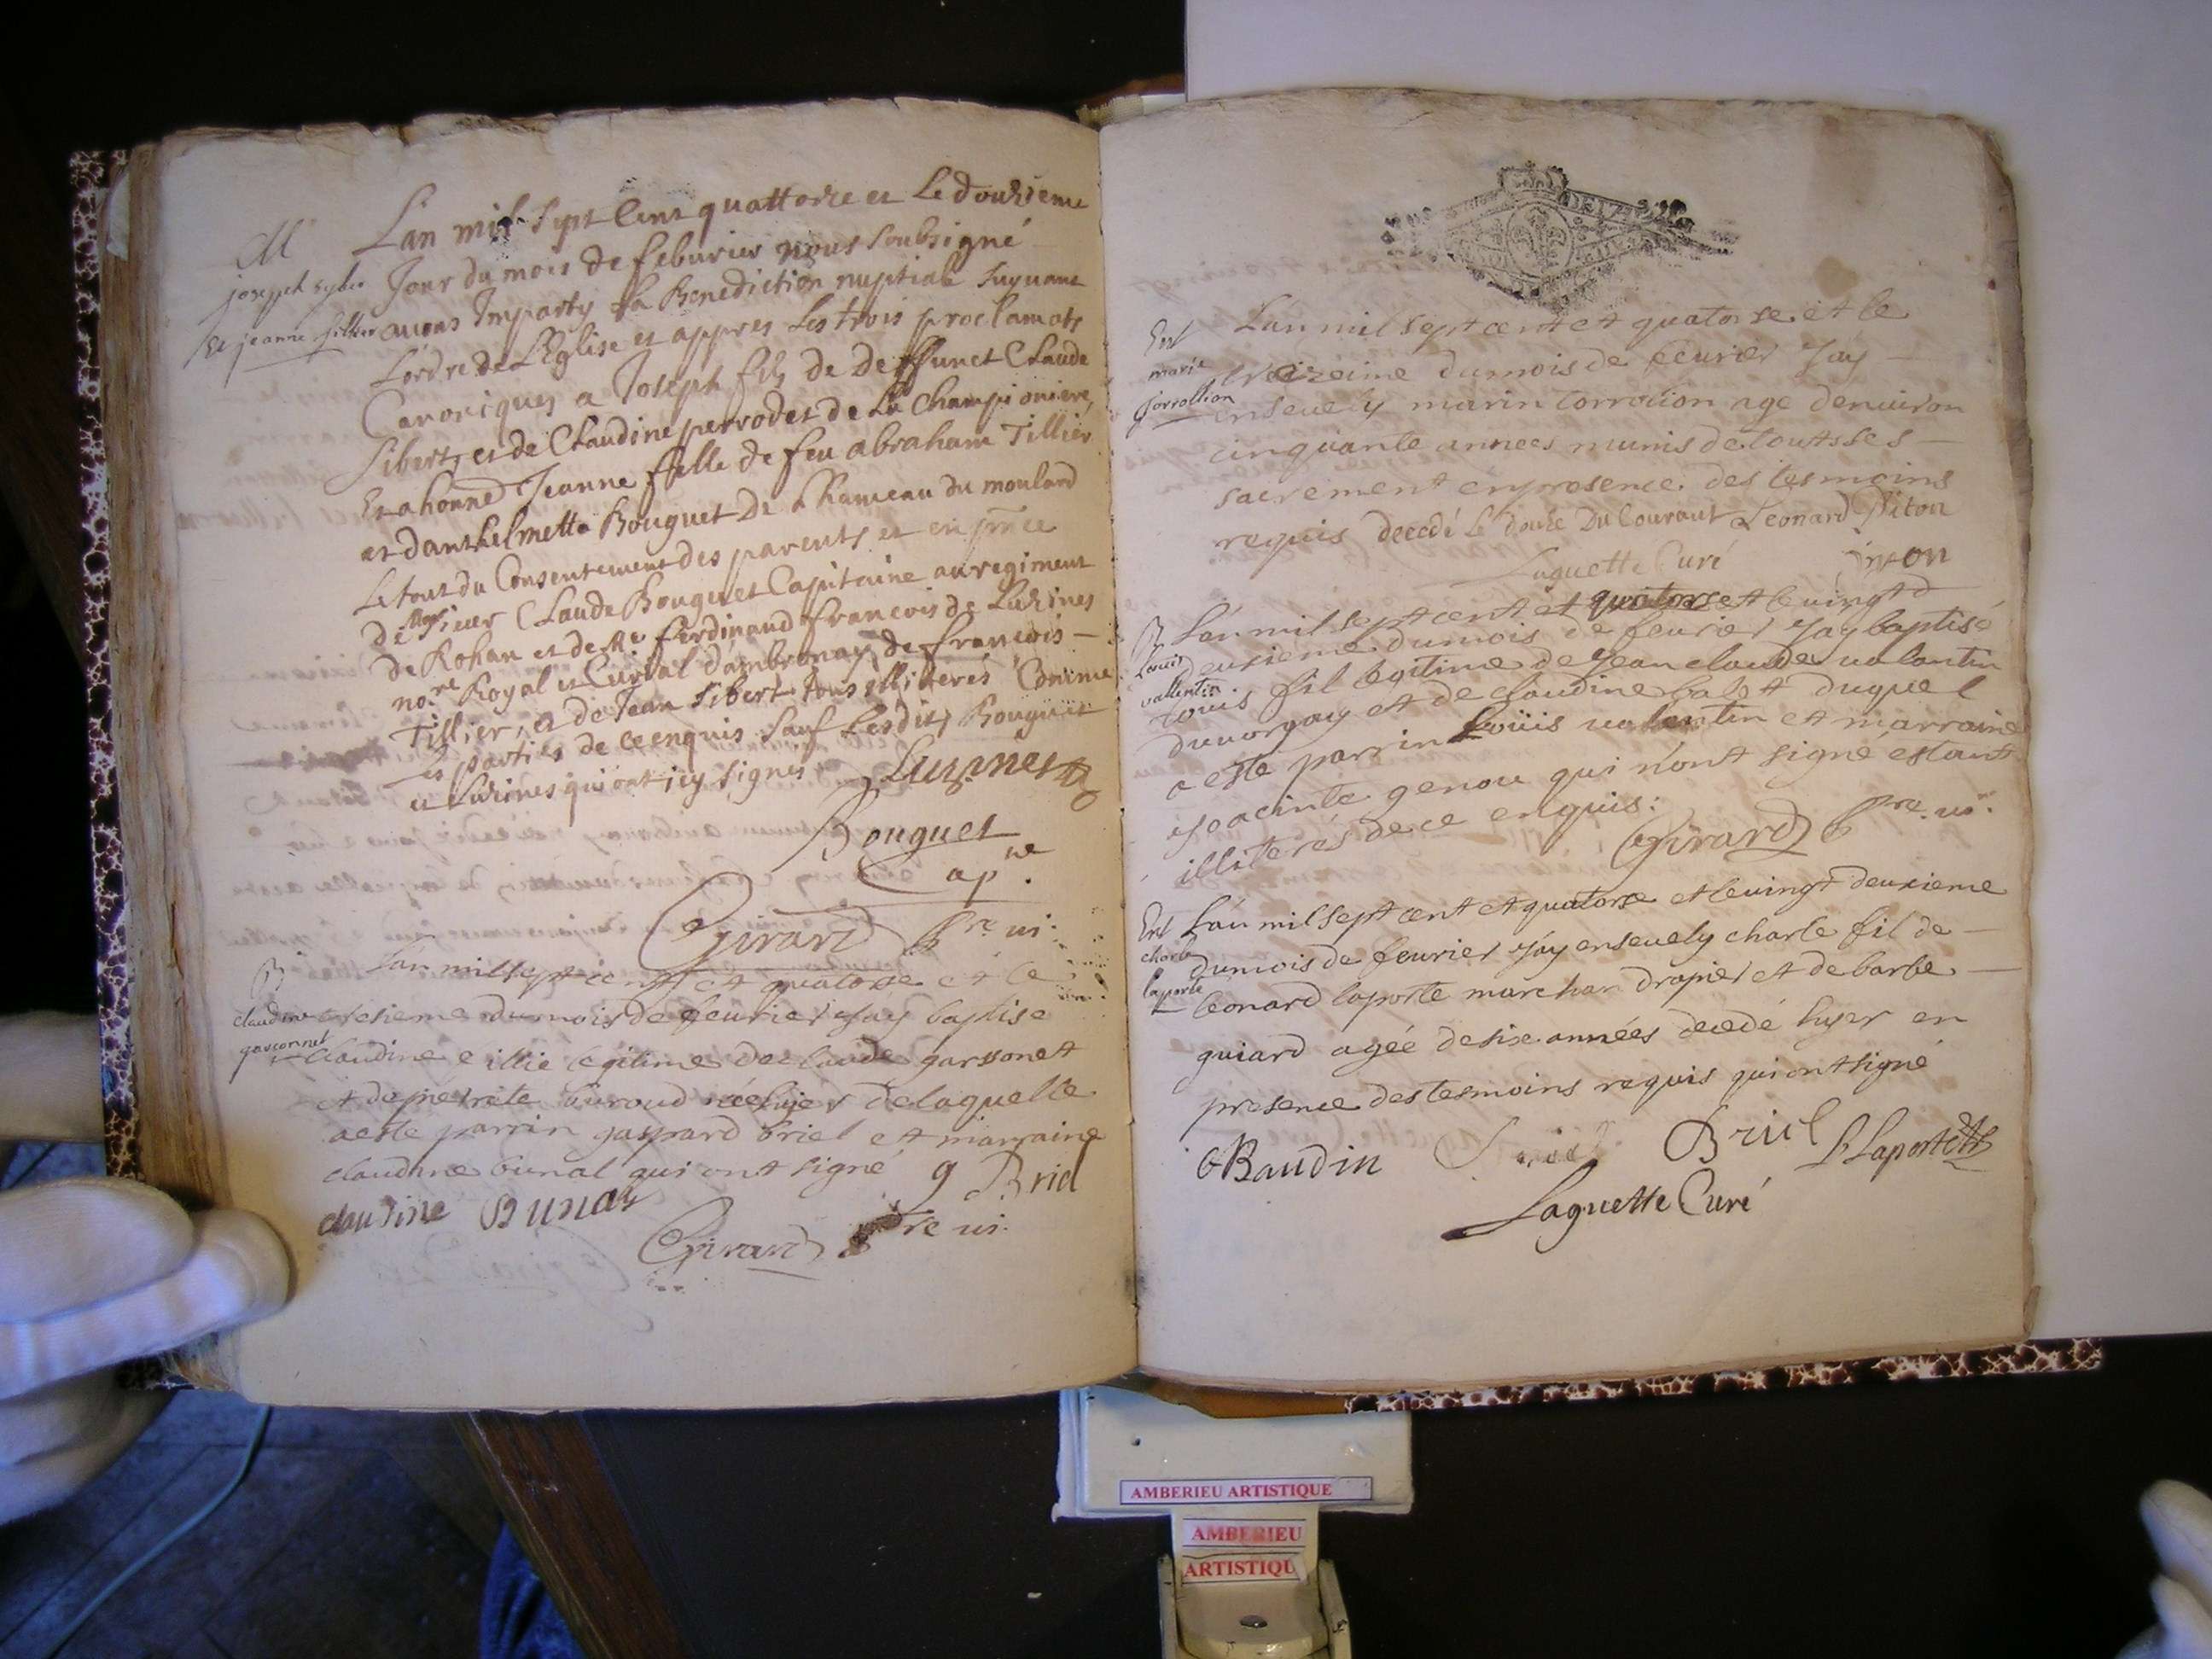 M
joseph syber
et jeanne tillier
Lan mil sept Cent quattorze et Le douzieme
Jour du mois de feburier nous soubsigné
auons Imparty la Benediction nuptiale suyuant
Lordre de LEglise et appres Les trois proclamats
Canoniques a Joseph fils de deffunct Claude
sibert, et de Claudine perrodet de La Championiere,
Et a honne Jeanne fille de feu abraham Tillier
et danthelmette Bouguet De Lhameau du moulard
Le tout du Consentement des parents et en pnce
de Claude Bouguet Capitaine au regiment
de Rohan et de Me ferdinand francois de Luzines
nore Royal et Curial dambronay, de francois
Tillier, et de Jean sibert tous illiterés Comme
Les parties de ce enquis sauf Lesdits Bouguet
et Luzines qui ont icy signes
Luzines
Bouguet
Cap ne
Girard pre vi.
B
claudine
garconnet
Lan mil sept cent et quatorse et le
tresieme du mois de feurier jay baptise
claudine fillie legitime de claude garssonet
et de pierrete buroud née hyer de laquelle
a este parrin gaspard briel et marraine
claudine bunal qui ont signé g Briel
claudine Bunal
Girard pre vi.
Ent
marin
Lan mil sept cent et quatorse et le
treizeime du mois de feurier Jay
enseuely marin torrolion age denuiron
cinquante annees munis de touts ses
sacrement en presence des tesmoins
requis decedé Le douze Du Courant Leonard Piton
Laguette Curé
B
Louis
vallentin
Lan mil sept cent et quatorse et le vingt
deuxieme du mois de feurier Jay baptisé
louis fil legitime de Jean claude valantin
duuorgay et de claudine balet duquel
a este parrin Louis valentin et marraine
yeacinte genou qui nont signé estant
illiterés de ce enquis:
Girard pre vi.
Ent
charle
laporte
Lan mil sept cent et quatorse et le vingt deuxieme
du mois de feurier Jay enseuely charle fil de
leonard laporte marchan drapier et de barbe
guiard agée de six années decedé hyer en
presence des tesmoins requis qui ont signé
Baudin Briel L Laporte
Laguette Curé
AMBERIEU ARTISTIQUE
AMBERIEU
ARTISTIQU